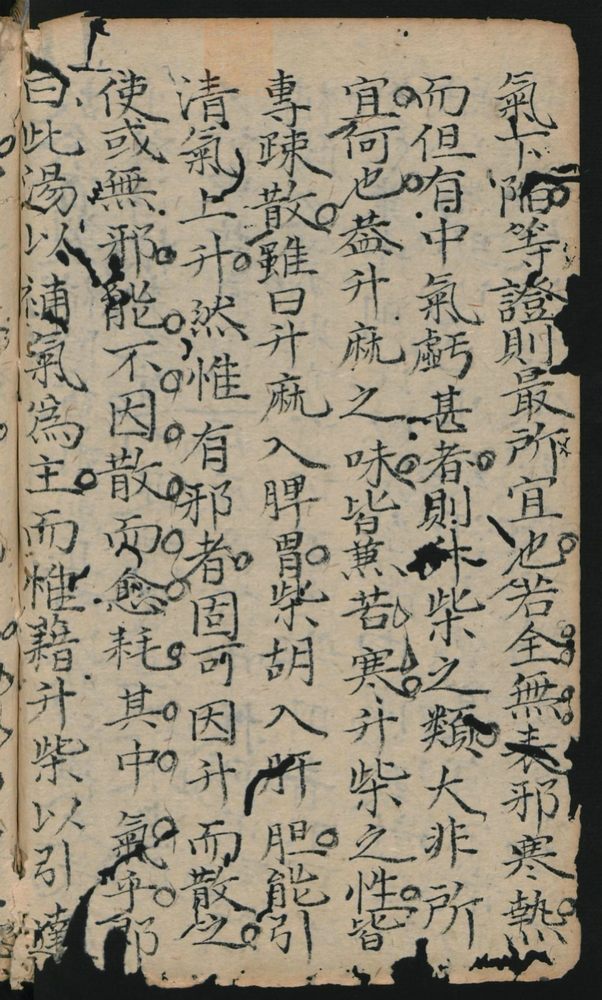 氣下陷等證則最所宜也若全無表邪寒熱
而但有中氣虧甚者則升柴之類大非所
宜何也蓋升麻之味皆蒹苦寒升柴之性皆
專疎散雖曰升麻入脾胃柴胡入肝胆能引
清氣上升然惟有邪者固可因升而散之
使或無邪能不因散而愈耗其中氣乎即
曰此湯以補氣為主而惟藉升柴以引達
上